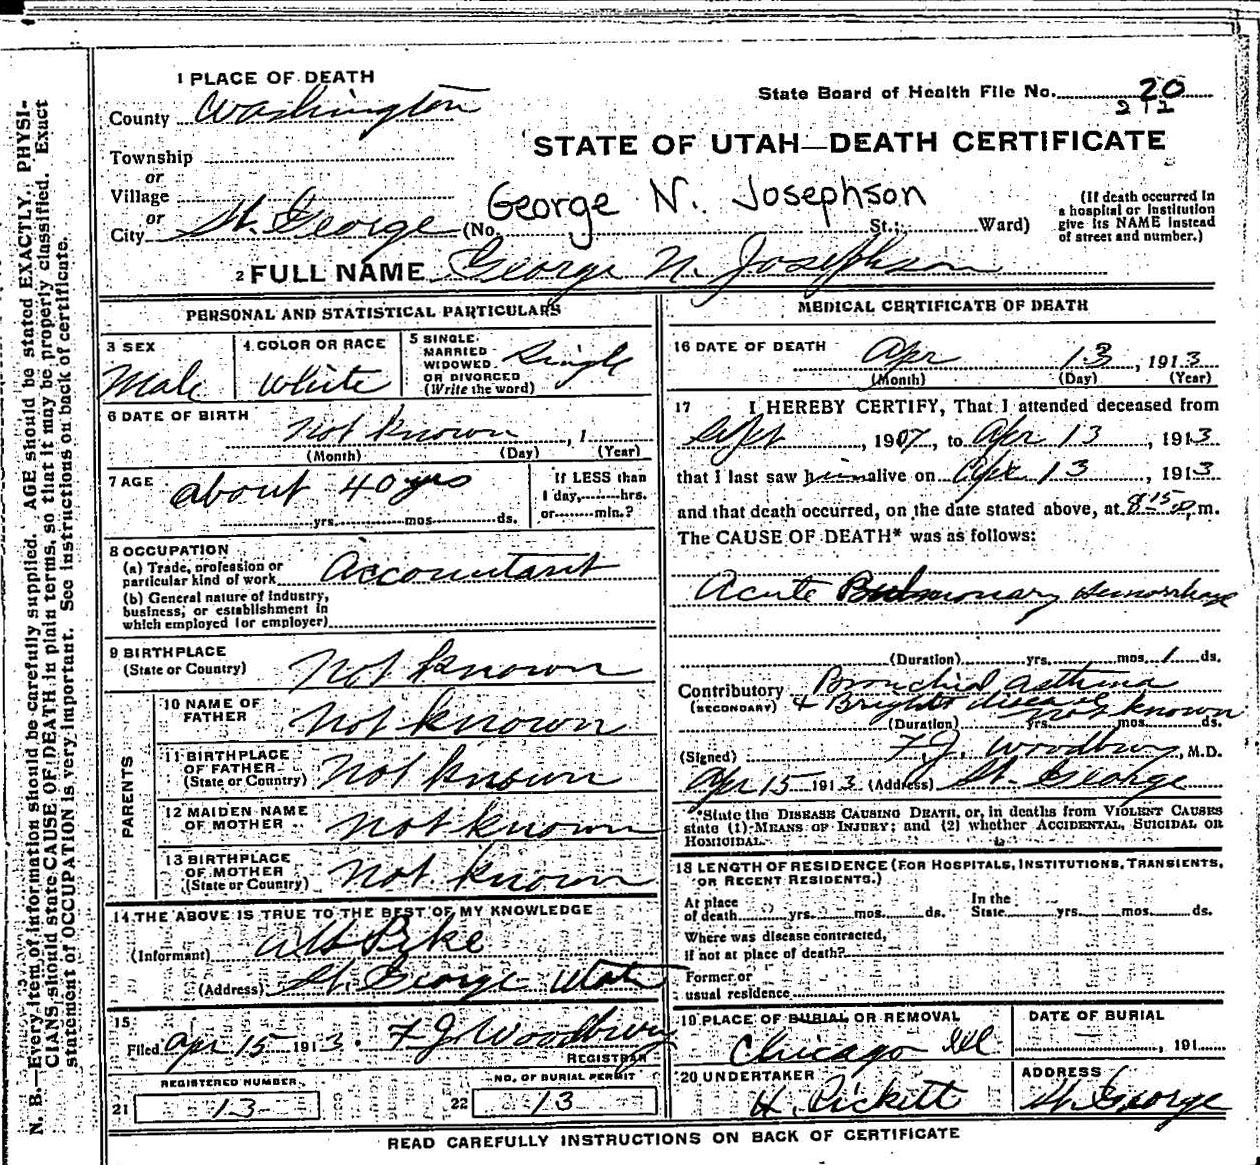 1 PLACE OF DEATH
County Washington
State Board of Health File No. 20
212
Township
or
Village
or
City St. George (No. St.; Ward)
George N. Josephson
STATE OF UTAH—DEATH CERTIFICATE
(If death occurred in
a hospital or institution
give its NAME instead
of street and number.)
2 FULL NAME George N. Josephson
PERSONAL AND STATISTICAL PARTICULARS
3 SEX
Male
4 COLOR OR RACE
White
5 SINGLE
MARRIED
WIDOWED
OR DIVORCED
(Write the word)
Single
6 DATE OF BIRTH
Not Known , 1
(Month) (Day) (Year)
7 AGE
about 40 yrs
yrs. mos. ds.
If LESS than
1 day, hrs.
or min.?
8 OCCUPATION
(a) Trade, profession or
particular kind of work Accountant
(b) General nature of Industry,
business, or establishment in
which employed (or employer)
9 BIRTHPLACE
(State or Country) Not Known
PARENTS
10 NAME OF
FATHER Not Known
11 BIRTHPLACE
OF FATHER
(State or Country) Not Known
12 MAIDEN NAME
OF MOTHER Not Known
13 BIRTHPLACE
OF MOTHER
(State or Country) Not Known
14 THE ABOVE IS TRUE TO THE BEST OF MY KNOWLEDGE
(Informant) Pike
(Address) St. George Utah
15
Filed Apr 15 1913. F. J. Woodbury
REGISTRAR
REGISTERED NUMBER
21 13
NO. OF BURIAL PERMIT
22 13
MEDICAL CERTIFICATE OF DEATH
16 DATE OF DEATH Apr 13, 1913
(Month) (Day) (Year)
17 I HEREBY CERTIFY, That I attended deceased from
Sept , 1907, to Apr 13, 1913
that I last saw him alive on Apr 13, 1913
and that death occurred, on the date stated above, at 8 15 m.
The CAUSE OF DEATH* was as follows:
Acute Pulmonary Hemorrhage
(Duration) yrs. mos. 1 ds.
Contributory Bronchial asthma
(SECONDARY) & Brights disease
(Duration) not known yrs. mos. ds.
(Signed) F. J. Woodbury, M.D.
Apr 15 1913 (Address) St. George
*State the DISEASE CAUSING DEATH, or, in deaths from VIOLENT CAUSES
state (1) MEANS OF INJURY; and (2) whether ACCIDENTAL, SUICIDAL OR
HOMICIDAL.
18 LENGTH OF RESIDENCE (FOR HOSPITALS, INSTITUTIONS, TRANSIENTS,
OR RECENT RESIDENTS.)
At place
of death yrs. mos. ds.
In the
State yrs. mos. ds.
Where was disease contracted,
if not at place of death?
Former or
usual residence
19 PLACE OF BURIAL OR REMOVAL
Chicago Ill
DATE OF BURIAL
, 191
20 UNDERTAKER
H. Pickett
ADDRESS
St. George
READ CAREFULLY INSTRUCTIONS ON BACK OF CERTIFICATE
N. B.—Every item of information should be carefully supplied. AGE should be stated EXACTLY. PHYSI-
CIANS should state CAUSE OF DEATH in plain terms, so that it may be properly classified. Exact
statement of OCCUPATION is very important. See instructions on back of certificate.